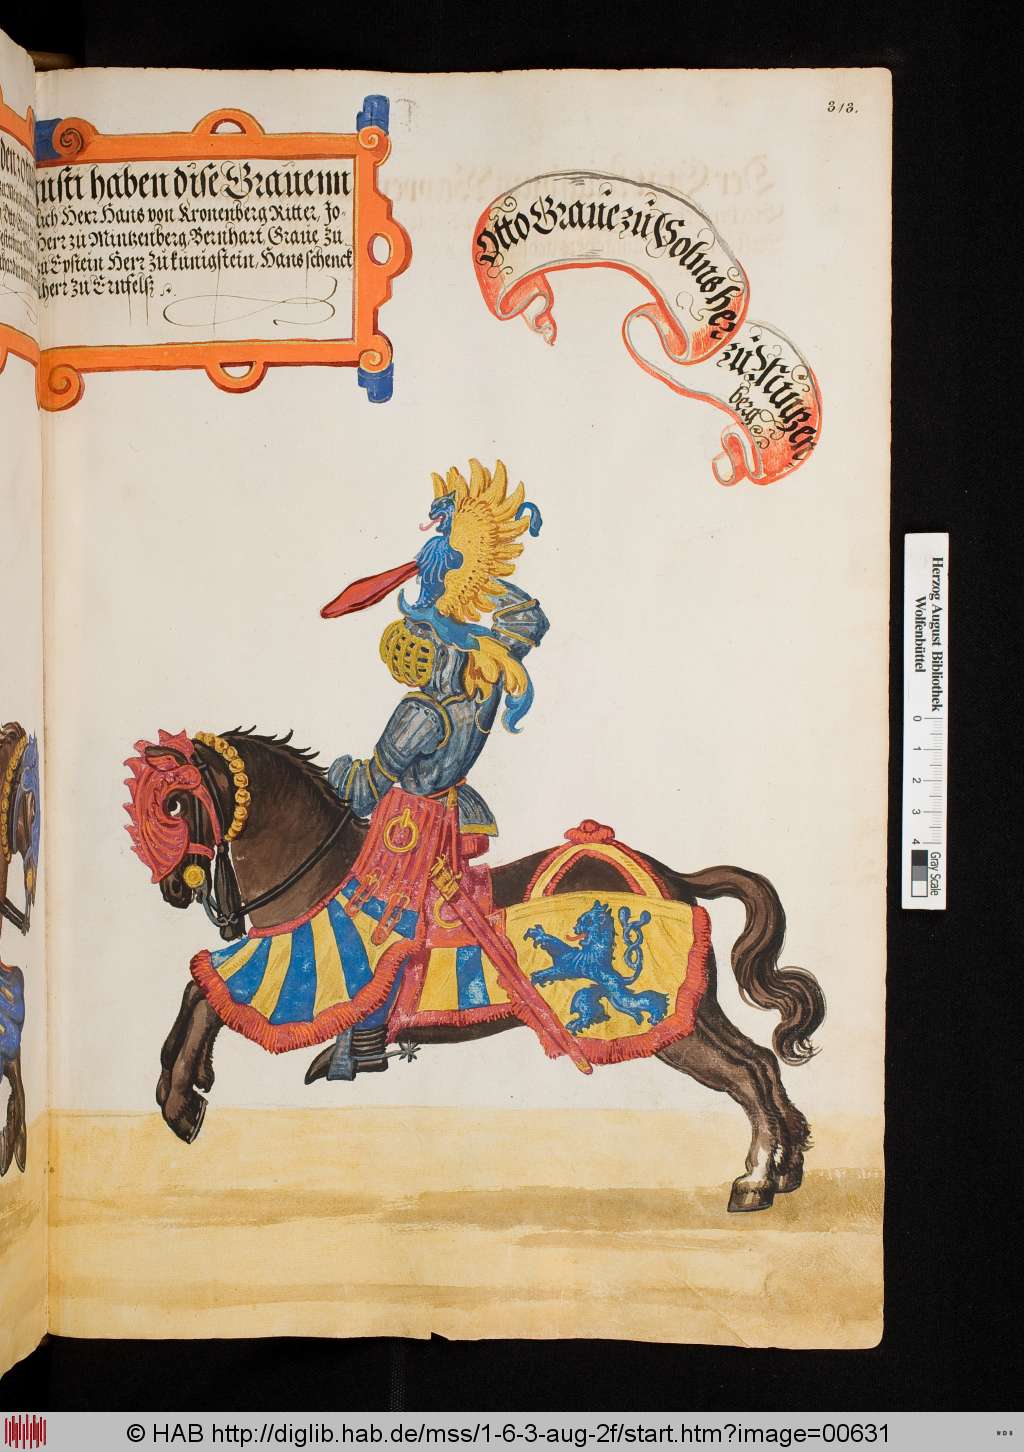 313.
unsti haben dise Grauenn
auch Herr Hans von Kronenberg Ritter, Jo-
Herr zu Mintzenberg, Bernhart Graue zu
zu Epstein Herr zu künigstein, Hans schenck
herr zu Erufelß
Otto Graue zu Solms her
zu Müntzen
berg
Herzog August Bibliothek
Wolfenbüttel
0 1 2 3 4
Gray Scale
© HAB http://diglib.hab.de/mss/1-6-3-aug-2f/start.htm?image=00631
WDB